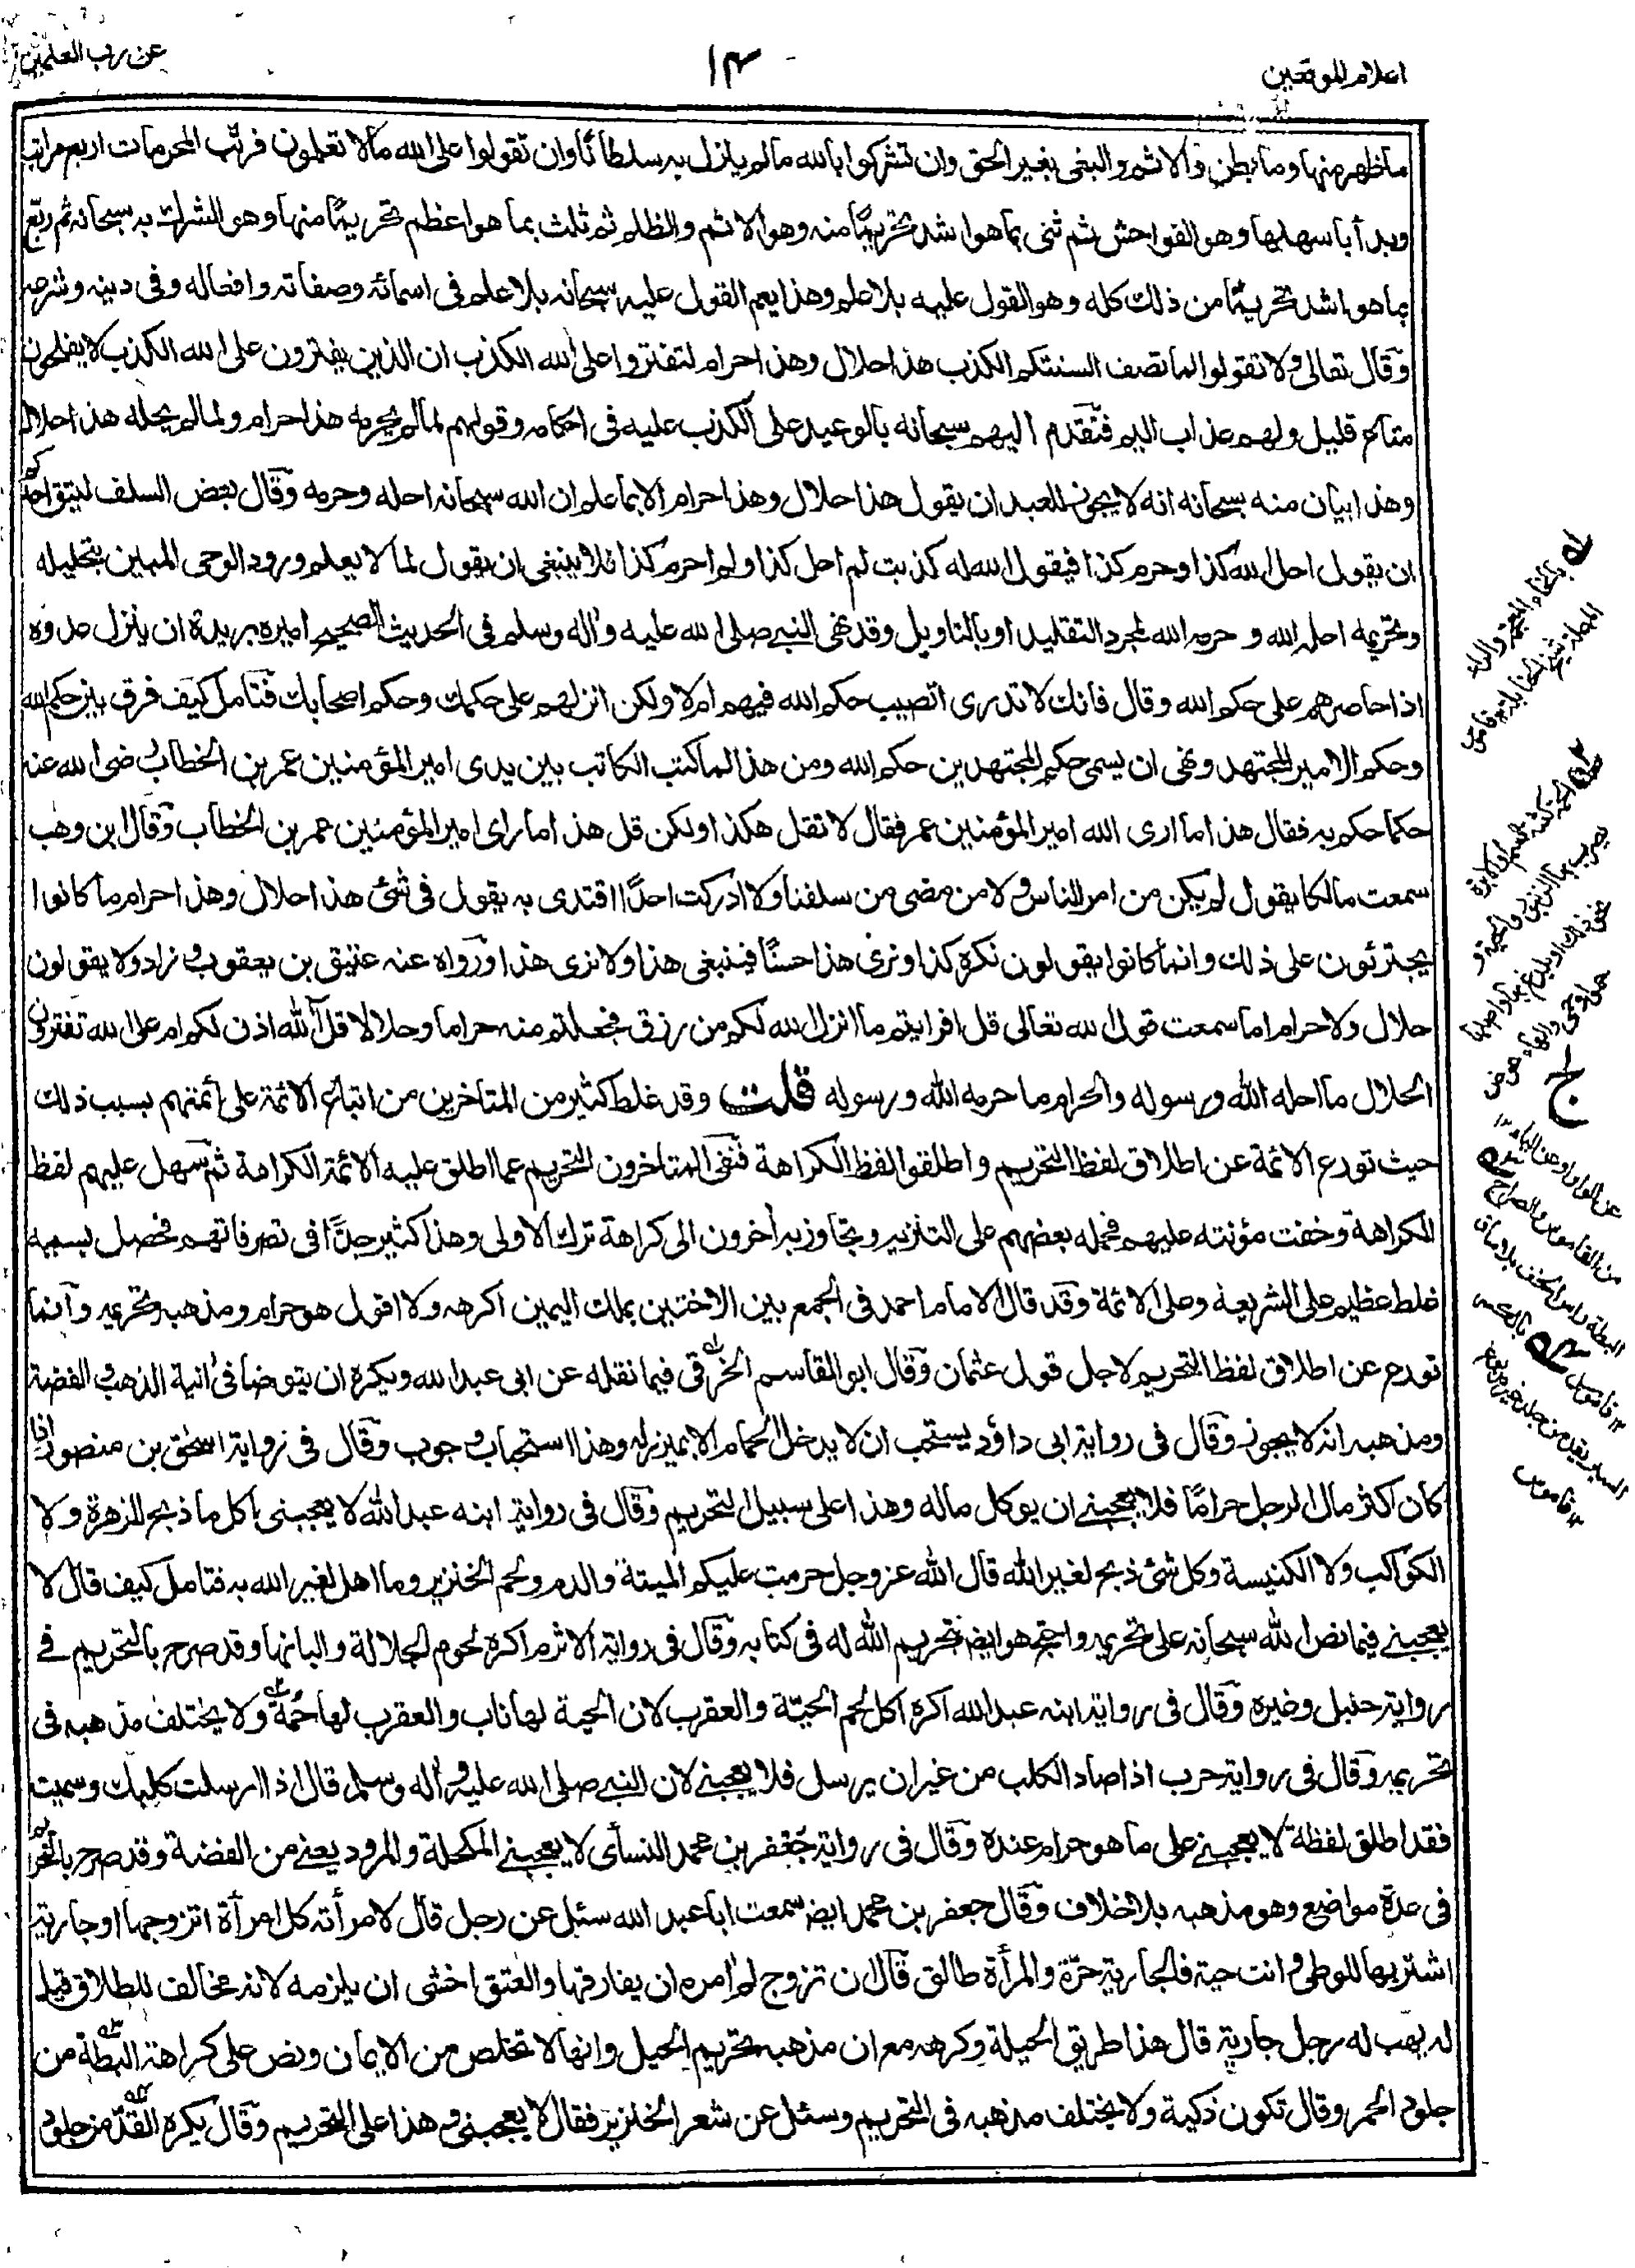 اعلام الموقعين
١٤
عن رب العلمين
ما ظهر منها وما بطن والاثم والبغى بغير الحق وان تشركوا بالله ما لم ينزل به سلطانا وان تقولوا على الله ما لا تعلمون فرتب المحرمات اربع مراتب
وبدأ باسهلها وهو الفواحش ثم ثنى بما هو اشد تحريمًا منه وهو الاثم والظلم ثم ثلث بما هو اعظم تحريمًا منها وهو الشرك به سبحانه ثم ربع
بما هو اشد تحريمًا من ذلك كله وهو القول عليه بلا علم وهذا يعم القول عليه سبحانه بلا علم فى اسمائه وصفاته وافعاله وفى دينه وشرعه
وقال تعالى ولا تقولوا لما تصف السنتكم الكذب هذا حلال وهذا حرام لتفتروا على الله الكذب ان الذين يفترون على الله الكذب لا يفلحون
متاع قليل ولهم عذاب اليم فتقدم اليهم سبحانه بالوعيد على الكذب عليه فى احكامه وقولهم لما لم يحرمه هذا حرام ولما لم يحله هذا حلال
وهذا بيان منه سبحانه انه لا يجوز للعبد ان يقول هذا حلال وهذا حرام الا بما علم ان الله سبحانه احله وحرمه وقال بعض السلف ليتق احدكم
ان يقول احل الله كذا وحرم كذا فيقول الله له كذبت لم احل كذا ولم احرم كذا فلا ينبغى ان يقول لما لا يعلم ورود الوحى المبين بتحليله
وتحريمه احله الله وحرمه الله لمجرد التقليد او بالتاويل وقد نهى النبى صلى الله عليه وآله وسلم فى الحديث الصحيح اميره بريدة ان ينزل عدوه
اذا حاصرهم على حكم الله وقال فانك لا تدرى اتصيب حكم الله فيهم ام لا ولكن انزلهم على حكمك وحكم اصحابك فتامل كيف فرق بين حكم الله
وحكم الامير المجتهد ونهى ان يسمى حكم المجتهدين حكم الله ومن هذا لما كتب الكاتب بين يدى امير المؤمنين عمر بن الخطاب رضى الله عنه
حكما حكم به فقال هذا ما ارى الله امير المؤمنين عمر فقال لا تقل هكذا ولكن قل هذا ما راى امير المؤمنين عمر بن الخطاب وقال ابن وهب
سمعت مالكا يقول لم يكن من امر الناس ولا من مضى من سلفنا ولا ادركت احدًا اقتدى به يقول فى شئ هذا حلال وهذا حرام ما كانوا
يجترئون على ذلك وانما كانوا يقولون نكره كذا ونرى هذا حسنًا فينبغى هذا ولا نرى هذا ورواه عنه عتيق بن يعقوب وزاد ولا يقولون
حلال ولا حرام اما سمعت قول الله تعالى قل افرايتم ما انزل الله لكم من رزق فجعلتم منه حراما وحلالا قل آلله اذن لكم ام على الله تفترون
الحلال ما احله الله ورسوله والحرام ما حرمه الله ورسوله قلت وقد غلط كثير من المتاخرين من اتباع الائمة على أئمتهم بسبب ذلك
حيث تورع الائمة عن اطلاق لفظ التحريم واطلقوا لفظ الكراهة فنفى المتاخرون التحريم عما اطلق عليه الائمة الكراهة ثم سهل عليهم لفظ
الكراهة وخفت مؤنته عليهم فحمله بعضهم على التنزيه وتجاوز به آخرون الى كراهة ترك الاولى وهذا كثير جدًا فى تصرفاتهم فحصل بسببه
غلط عظيم على الشريعة وعلى الائمة وقد قال الامام احمد فى الجمع بين الاختين بملك اليمين اكرهه ولا اقول هو حرام ومذهبه تحريمه وانما
تورع عن اطلاق لفظ التحريم لاجل قول عثمان وقال ابو القاسم الخرقى فيما نقله عن ابى عبد الله ويكره ان يتوضا فى آنية الذهب والفضة
ومذهبه انه لا يجوز وقال فى رواية ابى داؤد يستحب ان لا يدخل الحمام الا بميزر له وهذا استحباب وجوب وقال فى رواية اسحق بن منصور اذا
كان اكثر مال الرجل حرامًا فلا يعجبنى ان يوكل ماله وهذا على سبيل التحريم وقال فى رواية ابنه عبد الله لا يعجبنى اكل ما ذبح للزهرة ولا
الكواكب ولا الكنيسة وكل شئ ذبح لغير الله قال الله عز وجل حرمت عليكم الميتة والدم ولحم الخنزير وما اهل لغير الله به فتامل كيف قال لا
يعجبنى فيما نص الله سبحانه على تحريمه واحتج هو ايضا بتحريم الله له فى كتابه وقال فى رواية الاثرم اكره لحوم الجلالة والبانها وقد صرح بالتحريم فى
رواية حنبل وغيره وقال فى رواية ابنه عبد الله اكره اكل لحم الحيّة والعقرب لان الحية لها ناب والعقرب لها حُمَة ولا يختلف مذهبه فى
تحريمه وقال فى رواية حرب اذا صاد الكلب من غير ان يرسل فلا يعجبنى لان النبى صلى الله عليه وآله وسلم قال اذا ارسلت كلبك وسميت
فقد اطلق لفظة لا يعجبنى على ما هو حرام عنده وقال فى رواية جعفر بن محمد النسأى لا يعجبنى المكحلة والمرود يعنى من الفضة وقد صرح بالتحريم
فى عدة مواضع وهو مذهبه بلا خلاف وقال جعفر بن محمد ايضا سمعت ابا عبد الله سئل عن رجل قال لامرأته كل امرأة اتزوجها او جارية
اشتريها للوطى وانت حية فالجارية حرّة والمرأة طالق قال ان تزوج لم آمره ان يفارقها والعتق اخشى ان يلزمه لانه مخالف للطلاق قيل
له يهب له رجل جارية قال هذا طريق الحيلة وكرهه مع ان مذهبه تحريم الحيل وانها لا تخلص من الايمان ونص على كراهة البطة من
جلود الحمر وقال تكون ذكية ولا يختلف مذهبه فى التحريم وسئل عن شعر الخنزير فقال لا يعجبنى وهذا على التحريم وقال يكره القدّ من جلود